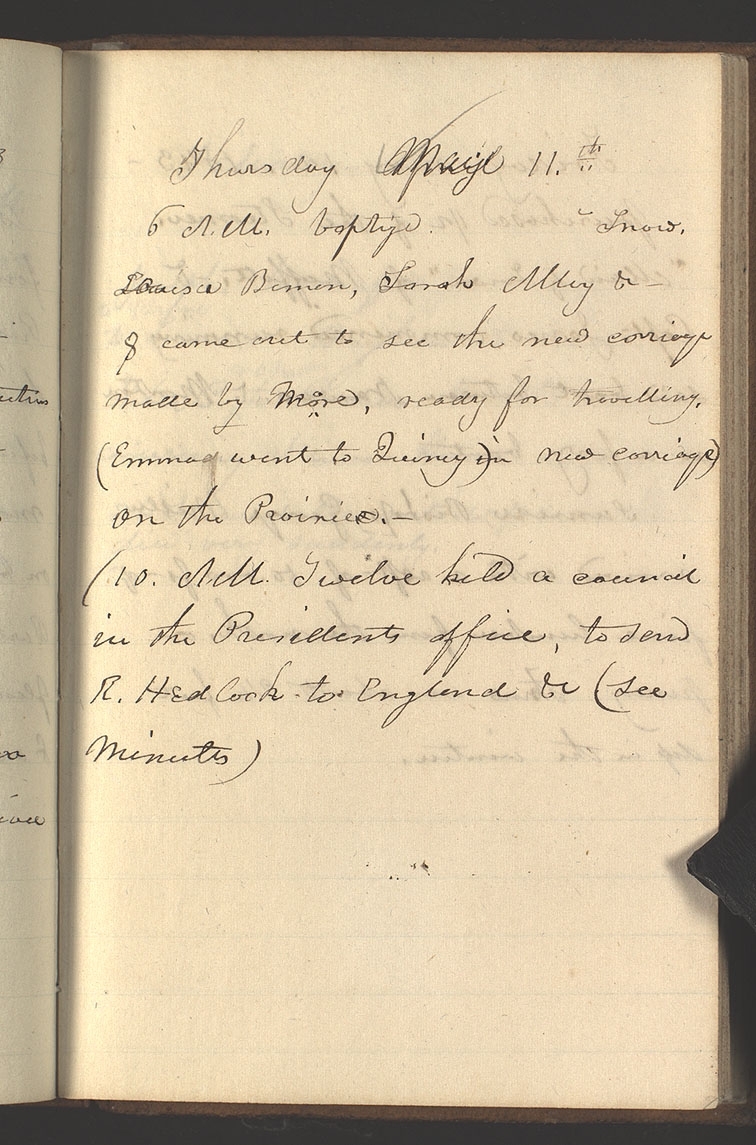 Thursday May 11.th
6 A.M. baptized. Snow.
Louisa Beman, Sarah Alley &-
8 came out to see the new carriage
made by More, ready for travelling.
(Emma went to Quincy) in new carriage)
on the Prairie.-
(10. A.M. Twelve held a council
in the Presidents office, to send
R. Hedlock to England &c (see
Minutes)